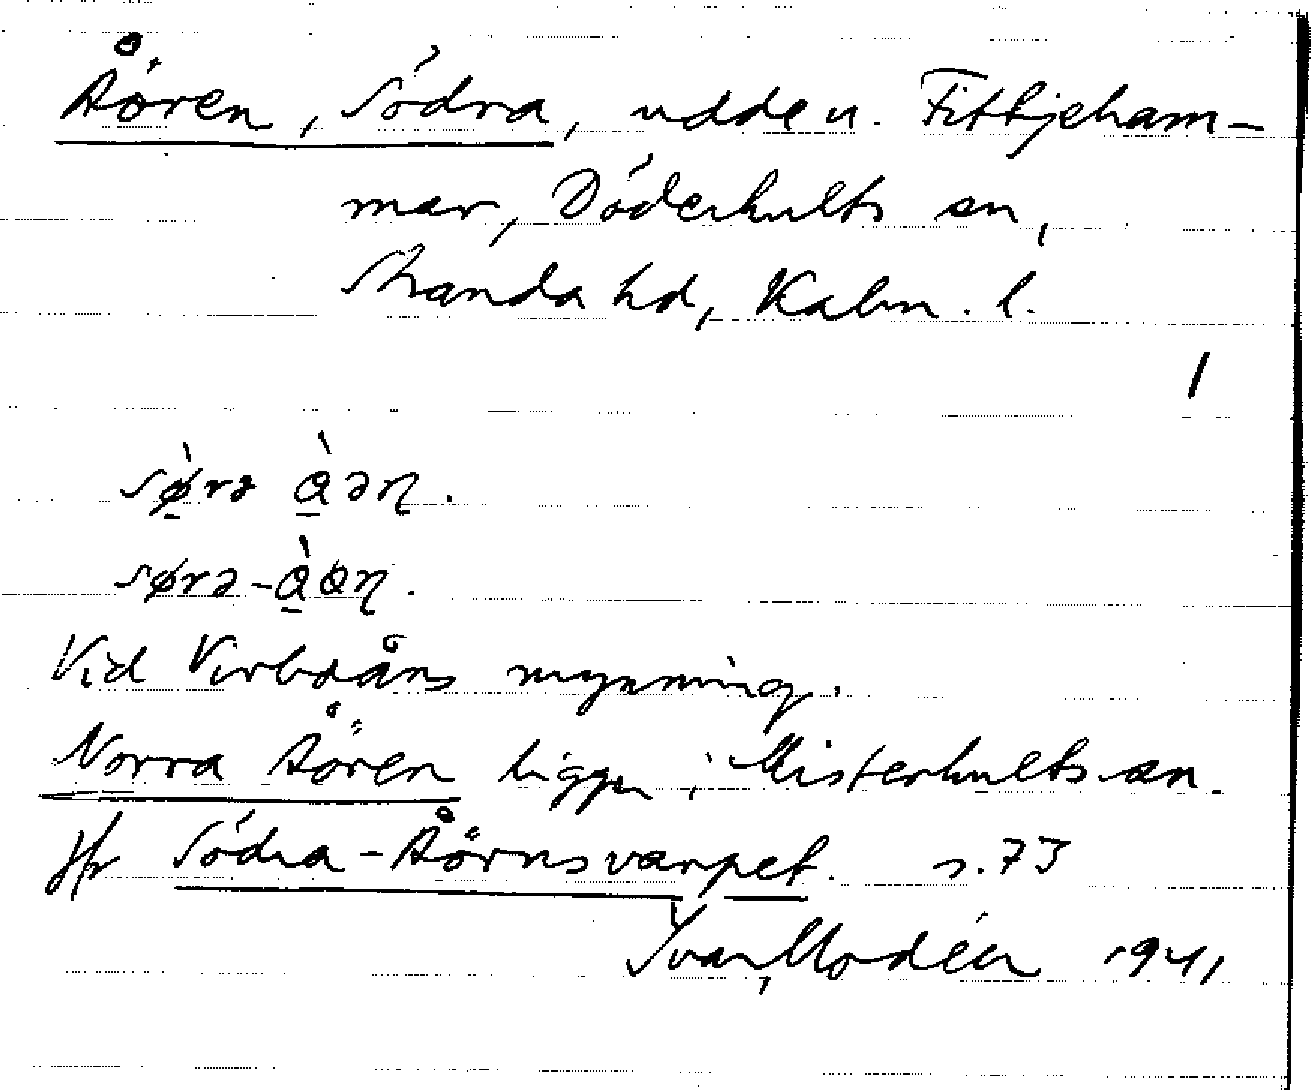 Åören, Södra, udde u. Fittjeham-
mar, Döderhults sn,
Stranda hd, Kalm. l.
1
sø̀rə ɑ̀əɳ.
sørə-ɑ̀ɑɳ.
Vid Virboåns mynning.
Norra Åören ligger i Misterhults sn.
Jfr Södra-Åörnsvarpet. s. 73
Ivar Modéer 1941